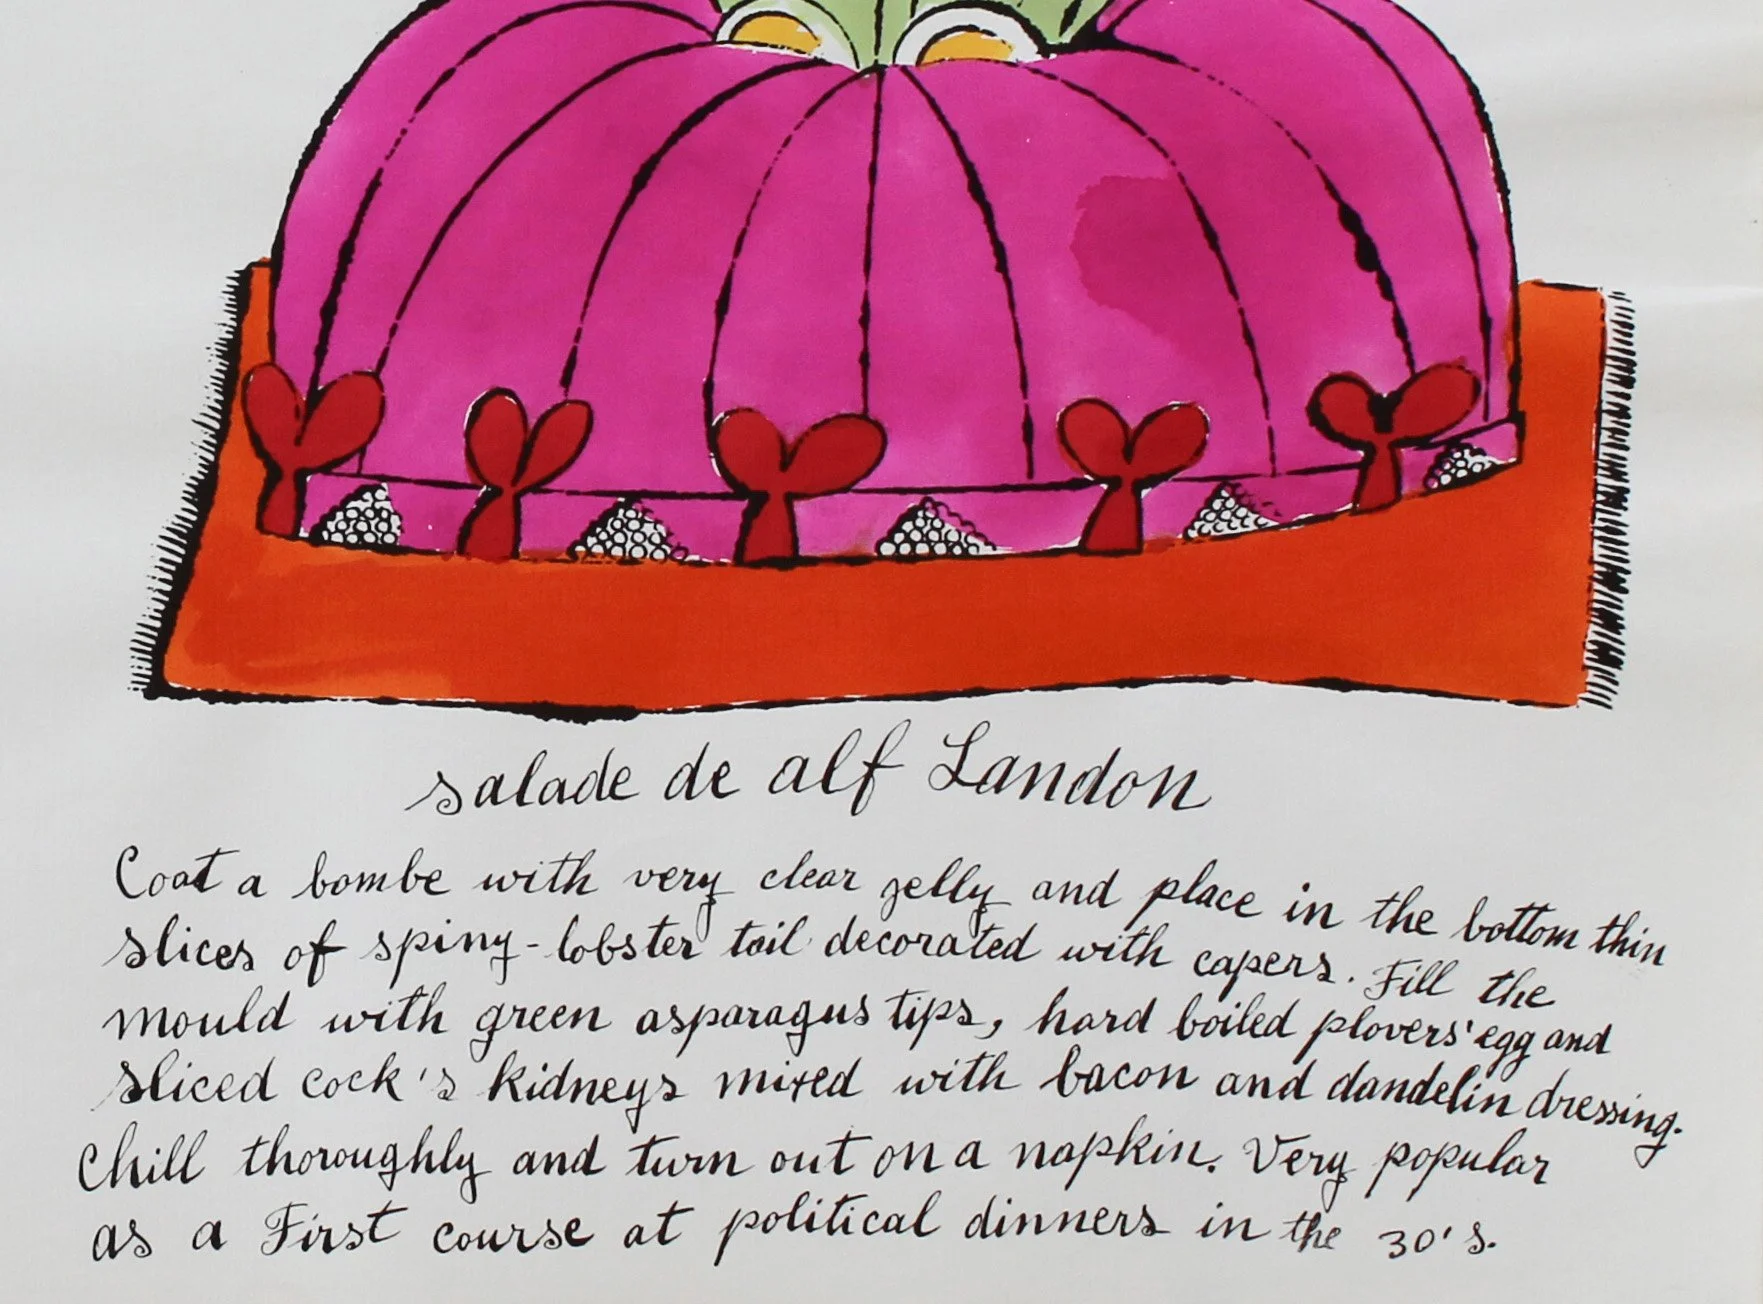 salade de alf Landon
Coat a bombe with very clear jelly and place in the bottom thin
slices of spiny-lobster tail decorated with capers. Fill the
mould with green asparagus tips, hard boiled plovers' egg and
sliced cock's kidneys mixed with bacon and dandelin dressing.
Chill thoroughly and turn out on a napkin. Very popular
as a First course at political dinners in the 30's.